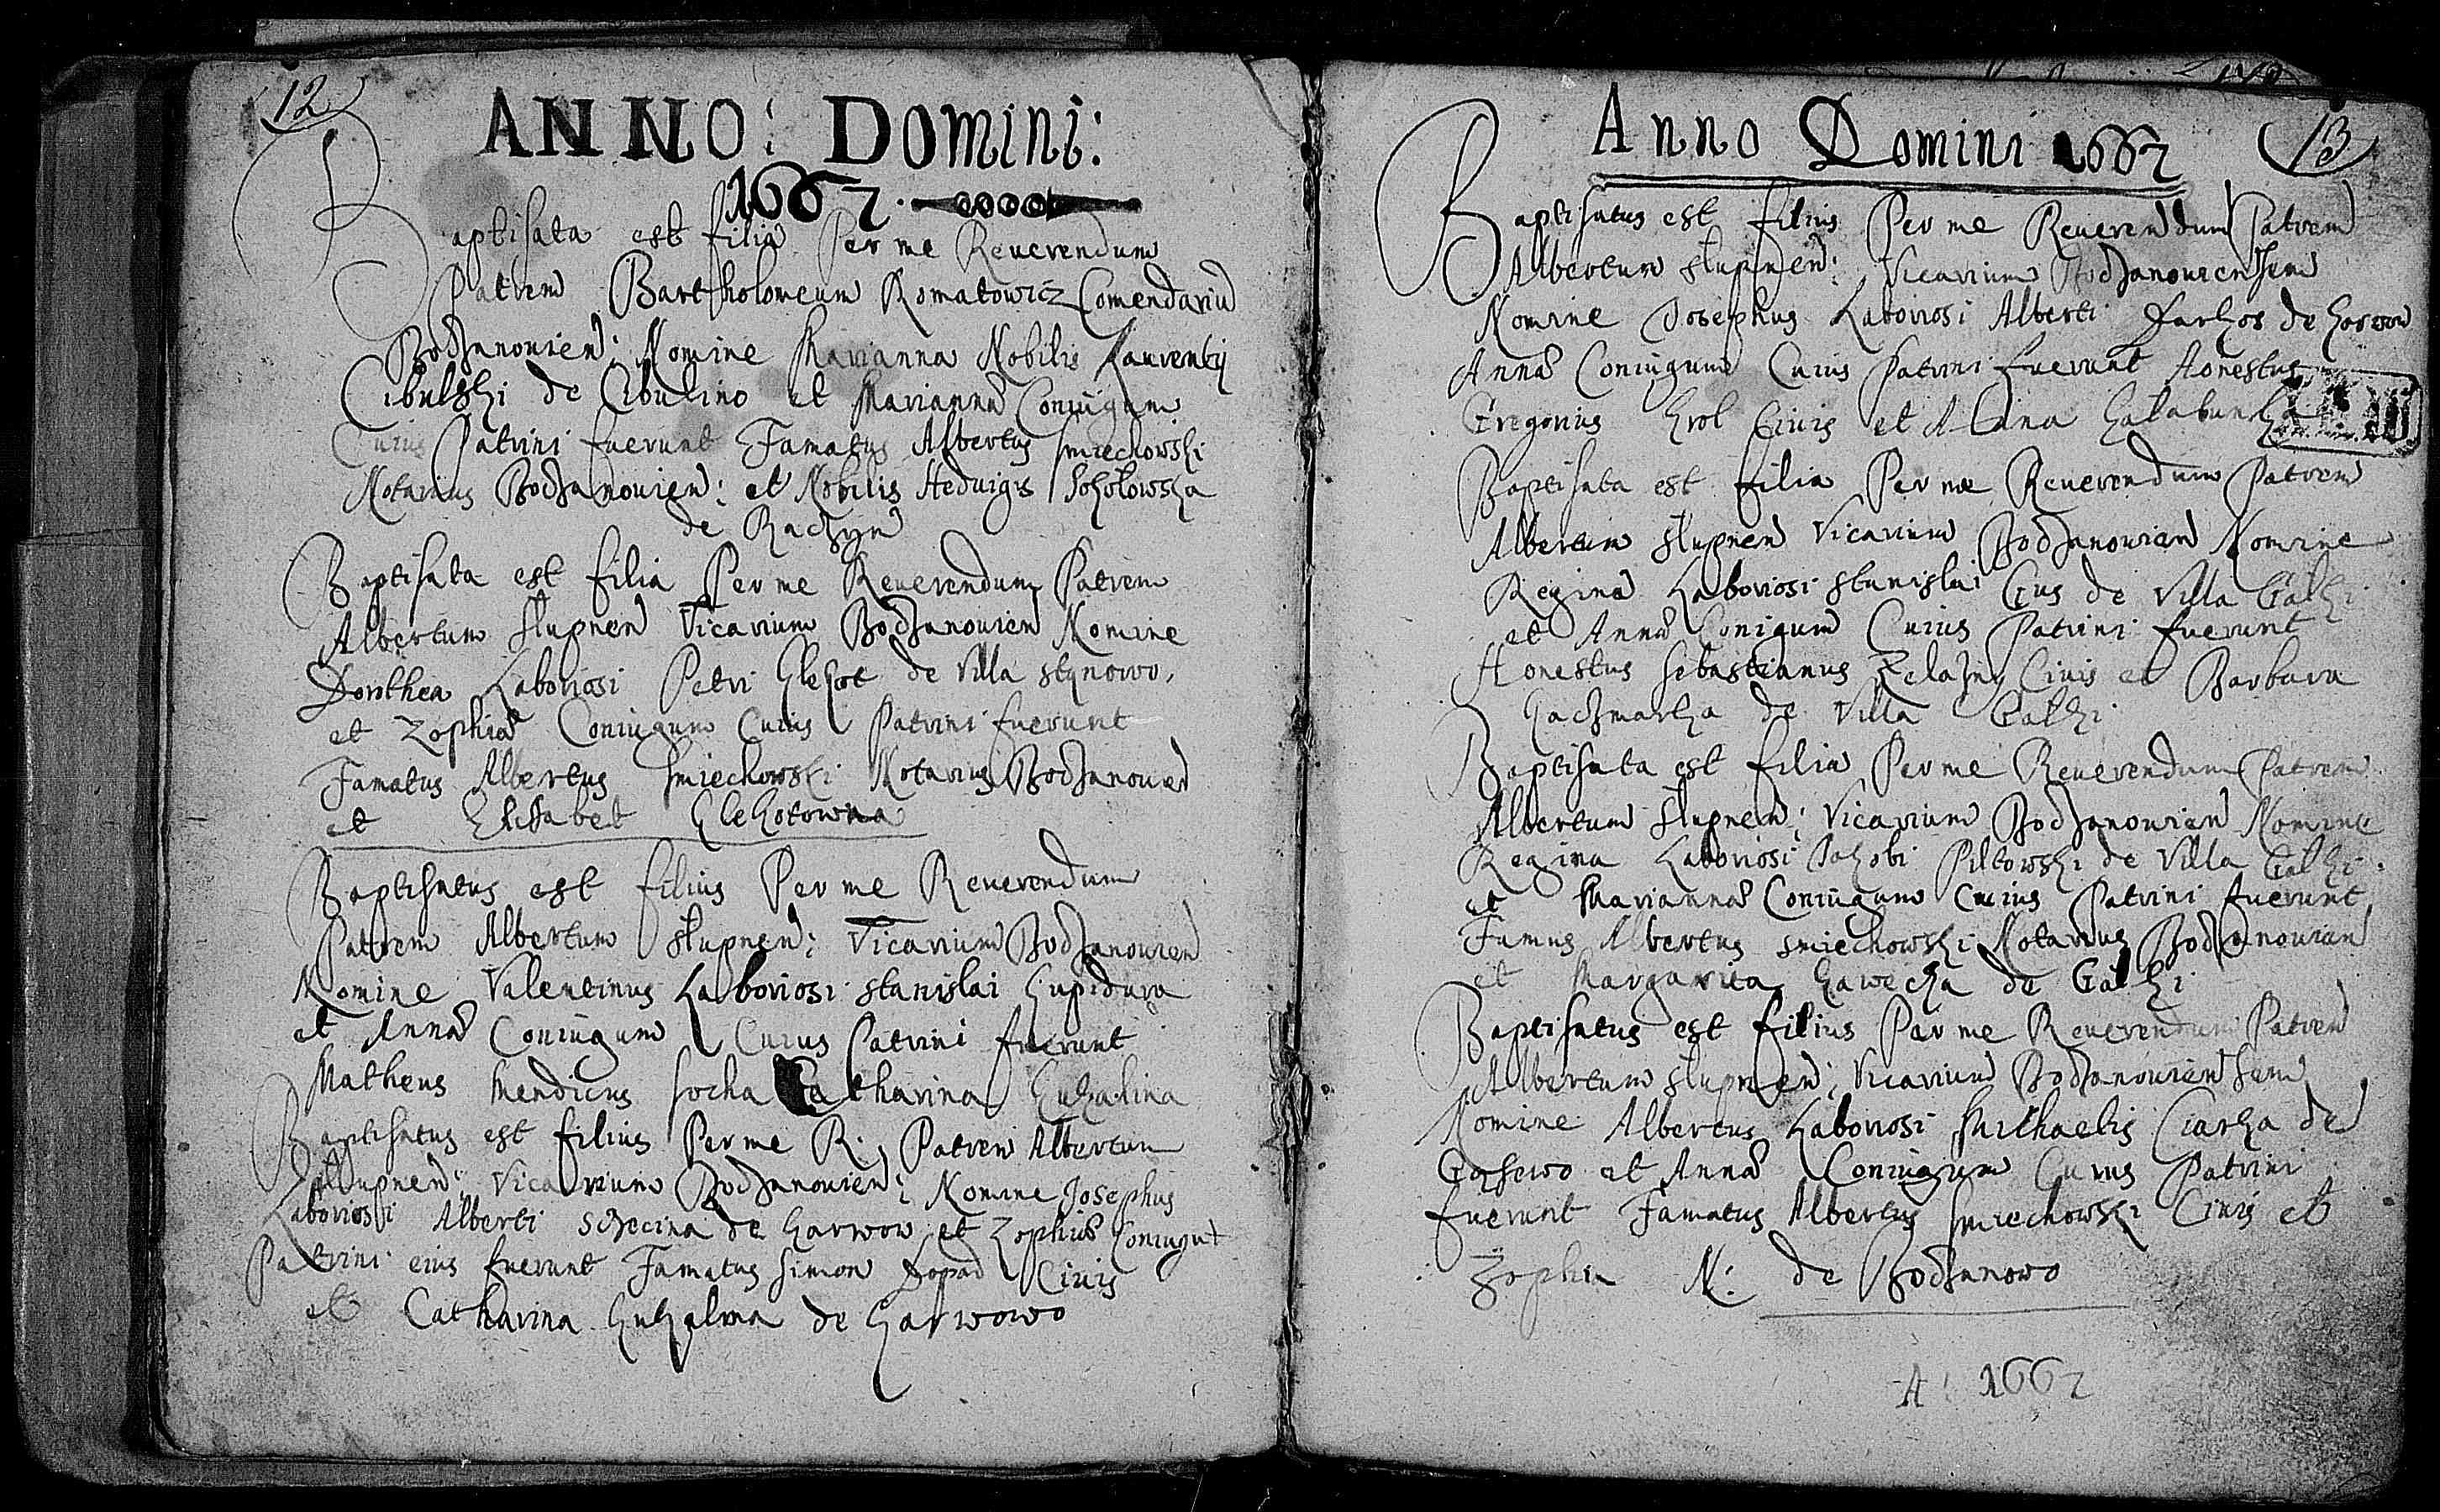 12
ANNO: Domini:
1662
Baptisata est filia Per me Reuerendum
Patrem Bartholomeum Romatowicz Comendariu
Bodzanouien: Nomine Marianna Nobilis Laurentij
Cibulski de Cibulino et Marianna Coniugum
Cuius Patrini fuerunt Famatus Albertus Smiechowski
Notarius Bodzanouien: et Nobilis Heduigis Sokolowska
de
Baptisata est filia Per me Reuerendum Patrem
Albertum Slupnen Vicarium Bodzanouien Nomine
Dorothea Laboriosi Petri de Villa
et Zophia Coniugum Cuius Patrini fuerunt
Famatus Albertus Smiechowski Notarius Bodzanouien
et Elisabet
Baptisatus est filius Per me Reuerendum
Patrem Albertum Slupnen: Vicarium Bodzanouien
Nomine Valentinus Laboriosi Stanislai Kupidura
et Anna Coniugum Cuius Patrini fuerunt
Matheus Mendicus Socha Catharina
Baptisatus est filius Per me R: Patrem Albertum
Slupnen: Vicarium Bodzanouien: Nomine Josephus
Laboriosi Alberti de Karwow et Zophia
Patrini eius fuerunt Famatus Simon Civis
et Catharina de Karwowo
13
Anno Domini 1662
Baptisatus est filius Per me Reuerendum Patrem
Albertum Slupnen: Vicarium Bodzanouiensem
Nomine Josephus Laboriosi Alberti de
Anna Coniugum Cuius Patrini fuerunt Honestus
Gregorius Krol Civis et
Baptisata est filia Per me Reuerendum Patrem
Albertum Slupnen Vicarium Bodzanouien Nomine
Regina Laboriosi Stanislai de Villa Galki
et Anna Conigum Cuius Patrini fuerunt
Honestus Sebastianus Zelazny Civis et Barbara
Kaczmarka de Villa Galki
Baptisata est filia Per me Reuerendum Patrem
Albertum Slupnen: Vicarium Bodzanouien Nomine
Regina Laboriosi Jakobi Piltowski de Villa Galki
et Marianna Coniugum Cuius Patrini fuerunt
Albertus Smiechowski Notarius Bodzanouien
et Margarita de Galki
Baptisatus est filius Per me Reuerendum Patrem
Albertum Slupnen: Vicarium Bodzanouiensem
Nomine Albertus Laboriosi Michaelis de
et Anna Coniugum Cuius Patrini
fuerunt Famatus Albertus Smiechowski Civis et
Zophia N: de Bodzanowo
A 1662